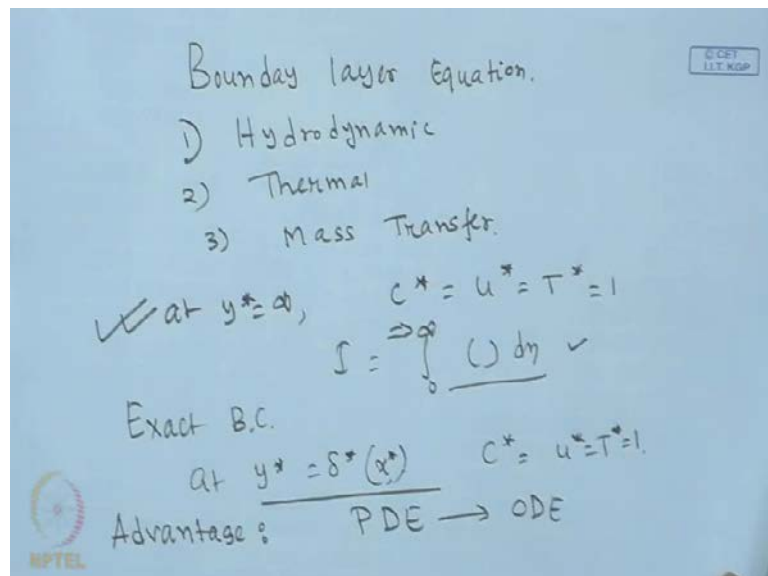 Bounday layer Equation.
© CET
I.I.T. KGP
1) Hydrodynamic
2) Thermal
3) Mass Transfer.
at y* = ∞, C* = u* = T* = 1
I = ⇒∞∫₀ () dη ✓
Exact B.C.
at y* = δ*(x*) C* = u* = T* = 1.
Advantage : PDE → ODE
NPTEL